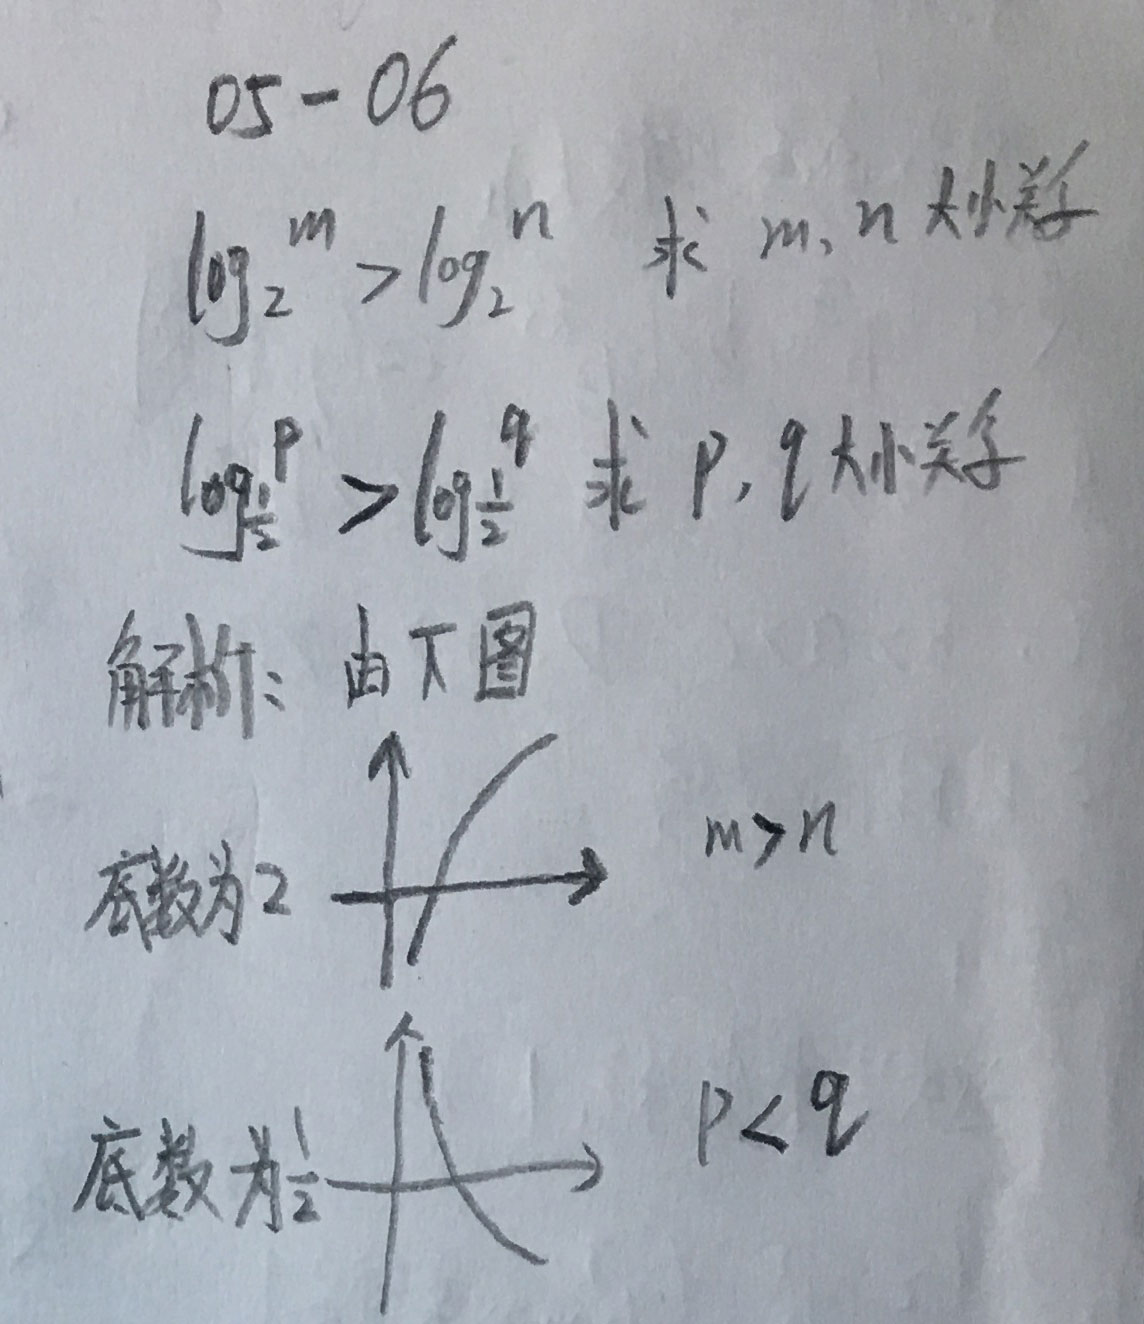 05-06
log₂ᵐ > log₂ⁿ 求 m, n 大小关系
log½ᵖ > log½^q 求 p, q 大小关系
解析: 由下图
底数为2 m>n
底数为½ p<q